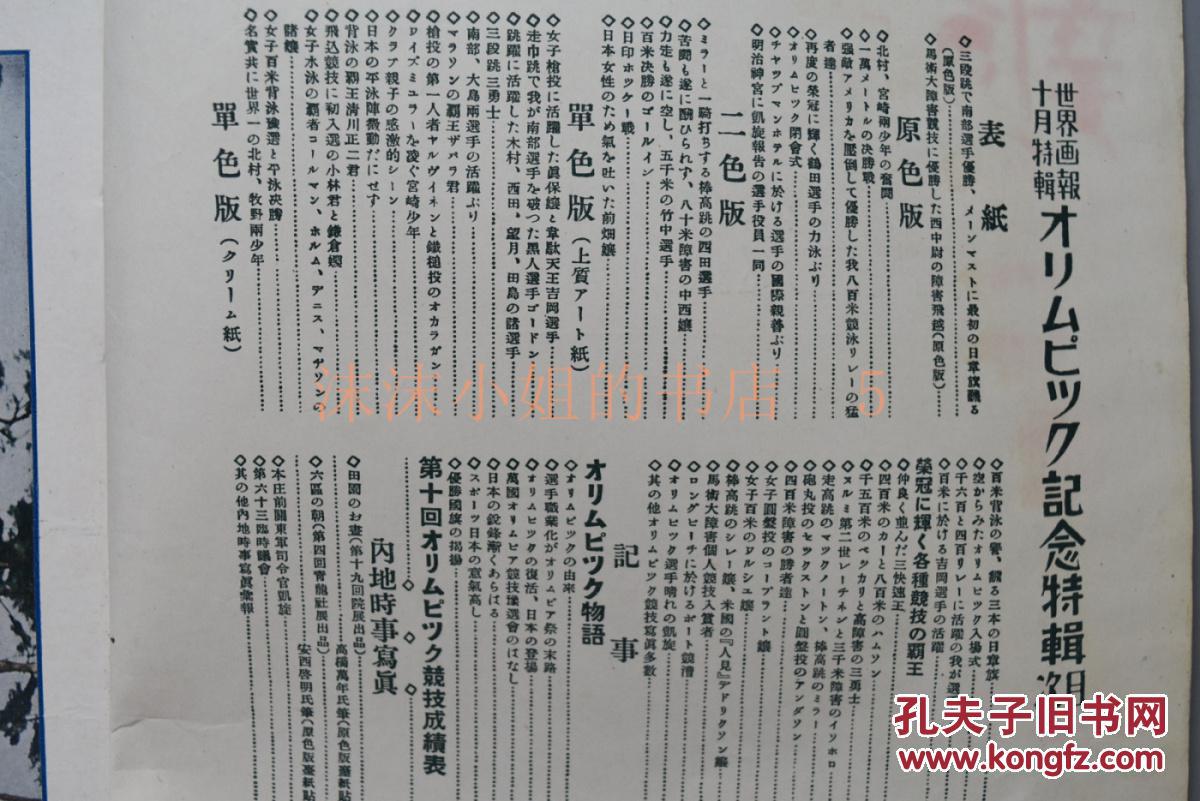 世界画報
十月特輯
オリムピック記念特輯
表紙
◇三段跳で南部選手優勝、メーンマストに最初の日章旗飜る
(原色版)
◇馬術大障害競技に優勝した西中尉の障害飛越(原色版)
原色版
◇北村、宮崎兩少年の奮闘
◇一萬メートルの決勝戰
◇強敵アメリカを壓倒して優勝した我八百米競泳リレーの猛
者達
◇再度の榮冠に輝く鶴田選手の力泳ぶり
◇オリムピック閉會式
◇チヤツプマンホテルに於ける選手の國際親善ぶり
◇明治神宮に凱旋報告の選手役員一同
二色版
◇ミラーと一騎打ちする棒高跳の西田選手
◇苦闘も遂に酬ひられず、八十米障害の中西孃
◇力走も遂に空し、五千米の竹中選手
◇百米決勝のゴールイン
◇日印ホツケー戰
◇日本女性のため氣を吐いた前畑孃
單色版(上質アート紙)
◇女子槍投に活躍した眞保孃と韋駄天王吉岡選手
◇走巾跳で我が南部選手を破つた黒人選手ゴードン
◇跳躍に活躍した木村、西田、望月、田島の諸選手
◇三段跳三勇士
◇南部、大島兩選手の活躍ぶり
◇マラソンの覇王ザバラ君
◇槍投の第一人者ヤルヴイネンと鐵槌投のオカラガン
◇ワイズミユラーを凌ぐ宮崎少年
◇クラブ親子の感激的シーン
◇日本の平泳陣微動だにせず
◇背泳の覇王清川正二君
◇飛込競技に初入選の小林君と鎌倉孃
◇女子水泳の覇者コールマン、ホルム、デニス、マヂソンの
諸孃
◇女子百米背泳豫選と平泳決勝
◇名實共に世界一の北村、牧野兩少年
單色版(クリーム紙)
◇百米背泳の譽、飜る三本の日章旗
◇空からみたオリムピツク入場式
◇千六百と四百リレーに活躍の我が選
◇百米に於ける吉岡選手の活躍
榮冠に輝く各種競技の覇王
◇仲良く並んだ三快速王
◇四百米のカーと八百米のハムソン
◇千五百米のベツカリと高障害の三勇士
◇ヌルミ第二世レーチネンと三千米障害のイソホロ
◇走高跳のマツクノートン、棒高跳のミラー
◇砲丸投のセツクストンと圓盤投のアンダソン
◇四百米障害の勝者達
◇女子圓盤投のコープランド孃
◇女子百米のワルシユ孃
◇棒高跳のシレー孃、米國の『人見』デドリクソン孃
◇馬術大障害個人競技入賞者
◇ロングビーチに於けるボート競漕
◇オリムピツク選手晴れの凱旋
◇其の他オリムピツク競技寫眞多數
記事
オリムピツク物語
◇オリムピツクの由來
◇選手職業化がオリムピア祭の末路
◇オリムピツクの復活、日本の登場
◇萬國オリムピア競技場選會のはなし
◇日本の鋭鋒漸くあらはる
◇スポーツ日本の意氣高し
◇優勝國旗の掲揚
第十回オリムピツク競技成績表
◇ ◇ ◇
内地時事寫眞
◇田園のお晝(第十九回院展出品)
高橋萬年氏筆(原色版臺紙貼
◇六區の朝(第四回青龍社展出品)
安西啓明氏筆(原色版臺紙貼
◇本庄前關東軍司令官凱旋
◇第六十三臨時議會
◇其の他内地時事寫眞彙報
沫沫小姐的书店 5
孔夫子旧书网
kongfz.com